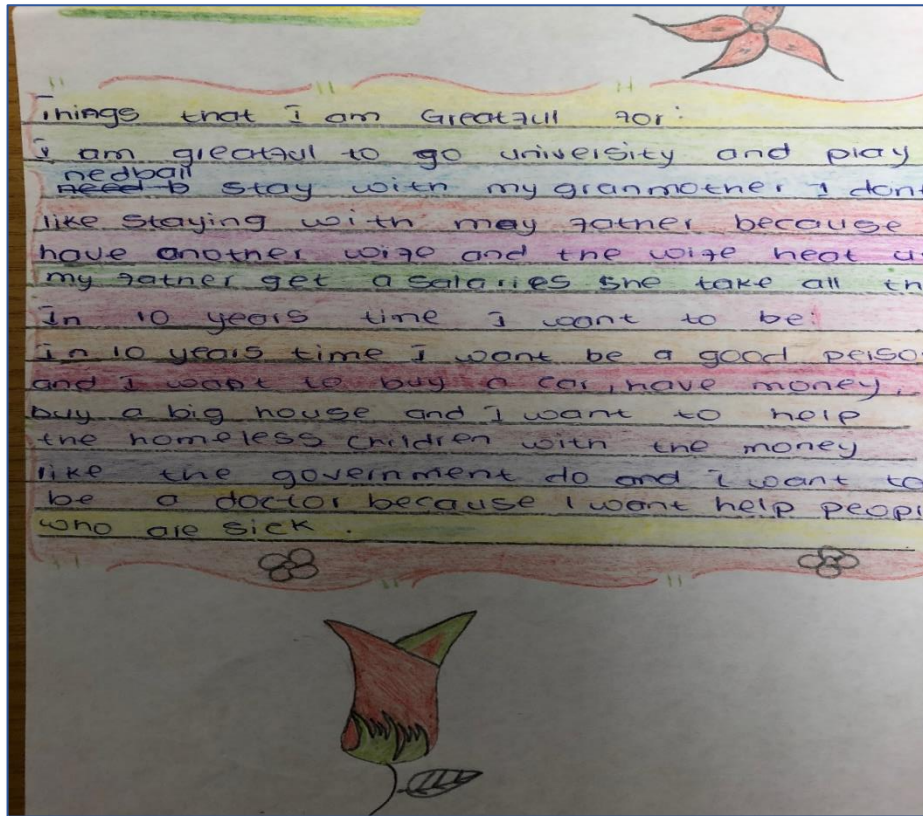 Things that I am Greatful for:
I am greatful to go university and play
nedball
need b stay with my granmother I dont
like staying with may father because
have another wife and the wife heat u
my father get a salaries she take all th
In 10 years time I want to be:
in 10 years time I want be a good perso
and I want to buy a car, have money,
buy a big house and I want to help
the homeless children with the money
like the government do and i want to
be a doctor because I want help peopl
who are sick.